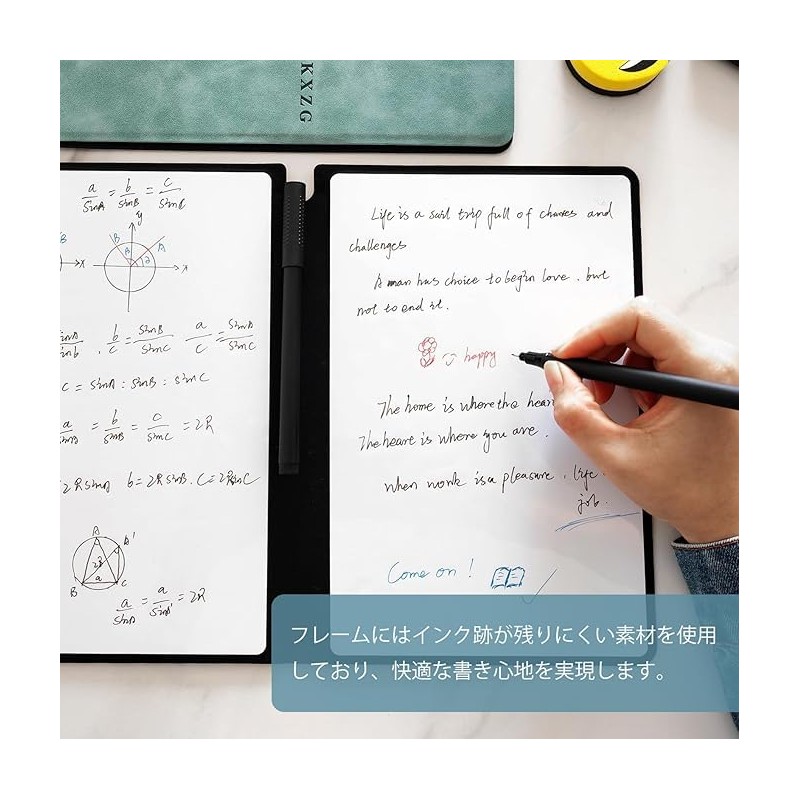 KXZG
a/sinA = b/sinB = c/sinC
y
B
A
x
B
2
x
sinA/sinb , b/c = sinB/sinC a/c = sinA/sinC
C = sinA : sinB : sinC
a/sinA = b/sinB = c/sinC = 2R
2RsinA b = 2RsinB . C = 2RsinC
A
A'
2R
a
B
C
a/sinA = a/sinA' = 2R
Life is a sail trip full of chances and
challenges
A man has choice to begin love . but
not to end it .
happy
The home is where the hear
The heart is where you are .
when work is a pleasure . life
job .
Come on !
フレームにはインク跡が残りにくい素材を使用
しており、快適な書き心地を実現します。